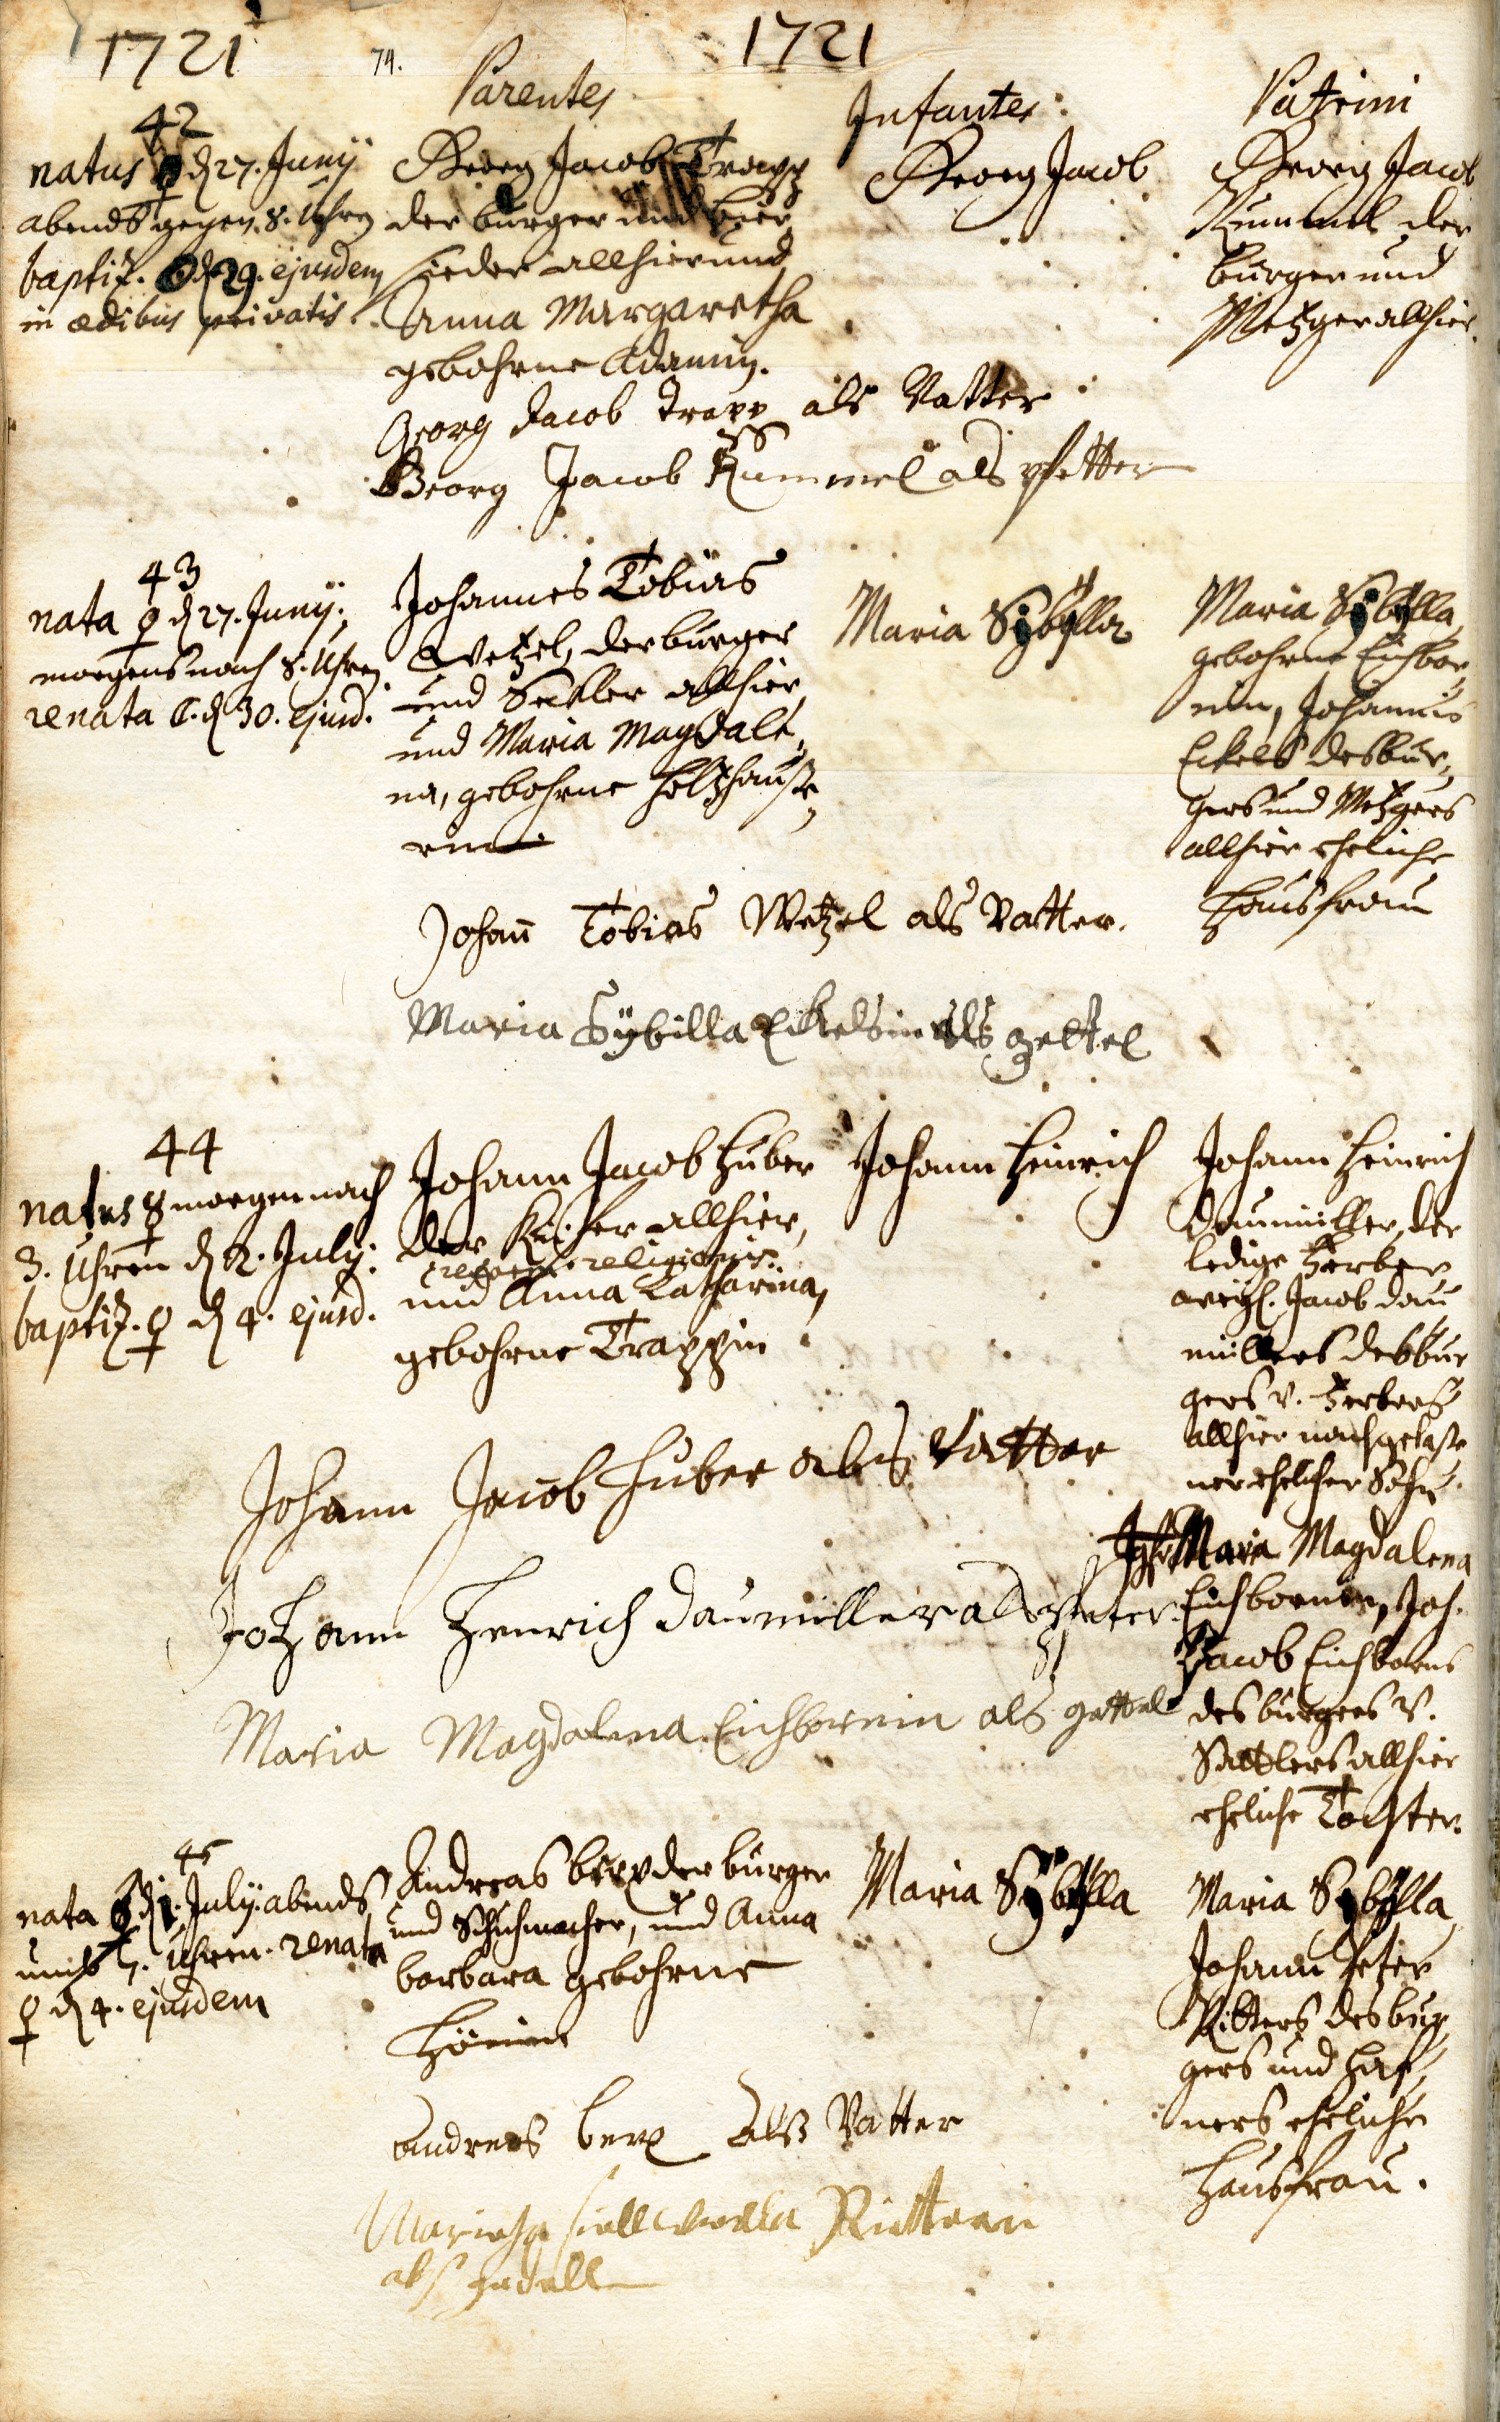 1721
74.
1721
Parentes
Infantes
Patrini
42
natus ♀ d 27. Junÿ
abends gegen 8. Uhren
baptiz. ☉ d 29. ejusdem
in ædibus privatis.
Georg Jacob Trapp
der burger und bier
sieder allhier und
Anna Margaretha
gebohrne Adamin.
Georg Jacob
Georg Jacob
Kummel der
burger und
Metzger allhier.
Georg Jacob Trapp als Vatter
Georg Jacob Kummel als pfetter
43
nata ♀ d 27. Junÿ.
morgens nach 8. Uhren
renata ☾. d 30. ejusd.
Johannes Tobias
Wetzel, der burger
und Seckler allhier
und Maria Magdale,
na, gebohrne Holtzhauße,
rin
Maria Sÿbÿlla
Maria Sÿbÿlla
gebohrne Eichbor,
nin, Johannis
Eckels des bur,
gers und Metzgers
allhier eheliche
Hausfrau
Johañ Tobias Wetzel als Vatter.
Maria Sÿbilla Eckelsin als gettel
44
natus ☿ morgen nach
3. Uhren d 2. Julÿ.
baptiz. ♀ d 4. ejusd.
Johann Jacob Huber
der Kiefer allhier,
reform. religionis.
und Anna Catharina,
gebohrne Trappin
Johann Heinrich
Johann Heinrich
Daumüller, der
ledige Gerber
weyl. Jacob Dau
müllers des bur
gers v. Gerbers
allhier nachgelaße
ner ehelicher Sohn.
Maria Magdalena
Eichbornin, Joh.
Jacob Eichborns
des burgers v.
Sattlers allhier
eheliche Tochter.
Johann Jacob Huber als Vatter
Johann Henrich Daumiller als Pfeter
Maria Magdalena Eichbornin als gettel
45
nata ♂ d 1. Julÿ abends
umb 7. Uhren. renata
♀ d 4. ejusdem
Andreas berx der burger
und Schuhmacher, und Anna
barbara gebohrne
Maria Sÿbÿlla
Maria Sÿbÿlla
Johann Peter
Ritters des bur
gers und Haf,
ners eheliche
Hausfrau.
andreas berx Alß Vatter
Ritterin
als gedell